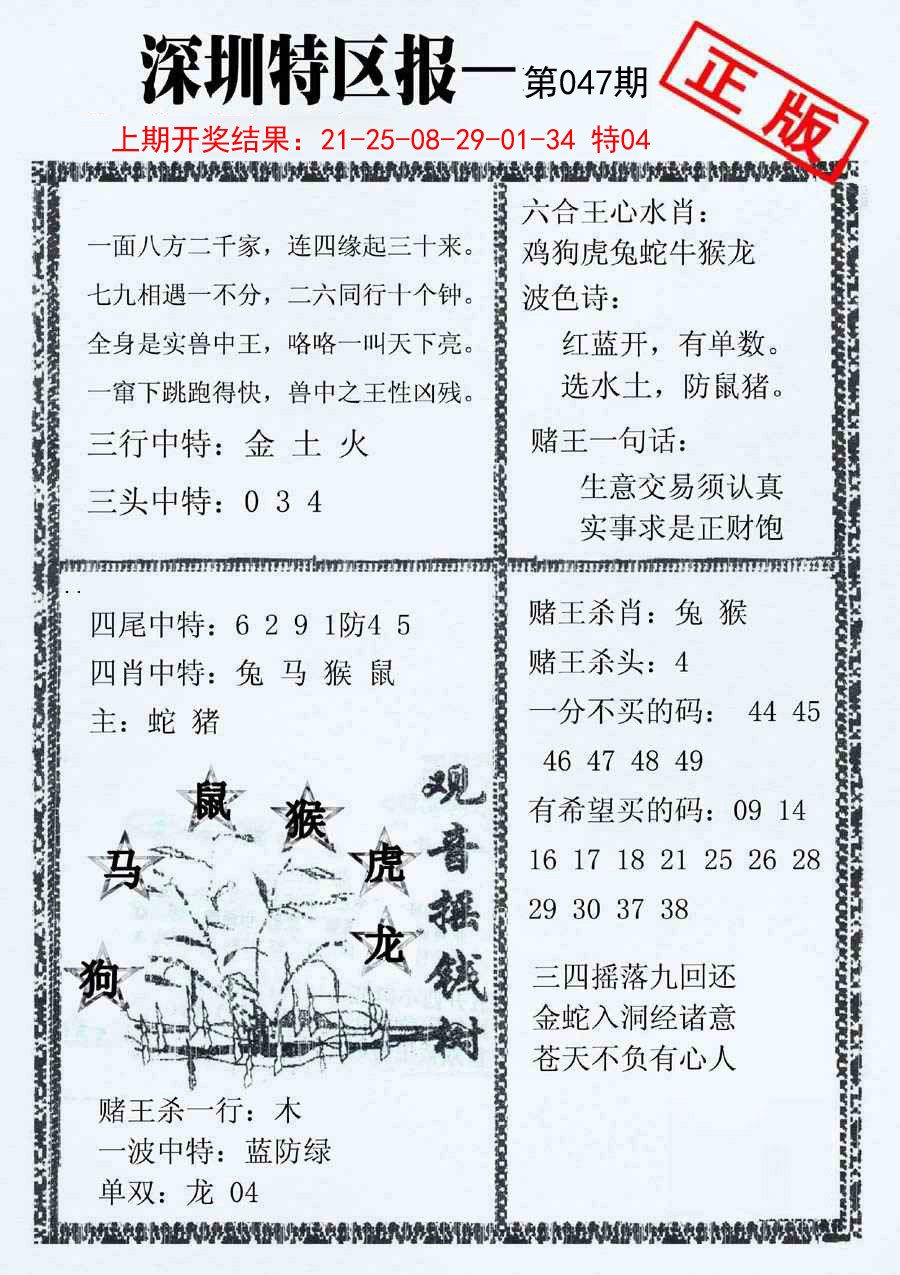 深圳特区报一第047期
正版
上期开奖结果：21-25-08-29-01-34 特04
一面八方二千家，连四缘起三十来。
七九相遇一不分，二六同行十个钟。
全身是实兽中王，咯咯一叫天下亮。
一窜下跳跑得快，兽中之王性凶残。
三行中特：金 土 火
三头中特：0 3 4
六合王心水肖：
鸡狗虎兔蛇牛猴龙
波色诗：
红蓝开，有单数。
选水土，防鼠猪。
赌王一句话：
生意交易须认真
实事求是正财饱
四尾中特：6 2 9 1防4 5
四肖中特：兔 马 猴 鼠
主：蛇 猪
鼠
猴
马
虎
龙
狗
观音摇钱树
赌王杀一行：木
一波中特：蓝防绿
单双：龙 04
赌王杀肖：兔 猴
赌王杀头：4
一分不买的码： 44 45
46 47 48 49
有希望买的码：09 14
16 17 18 21 25 26 28
29 30 37 38
三四摇落九回还
金蛇入洞经诸意
苍天不负有心人